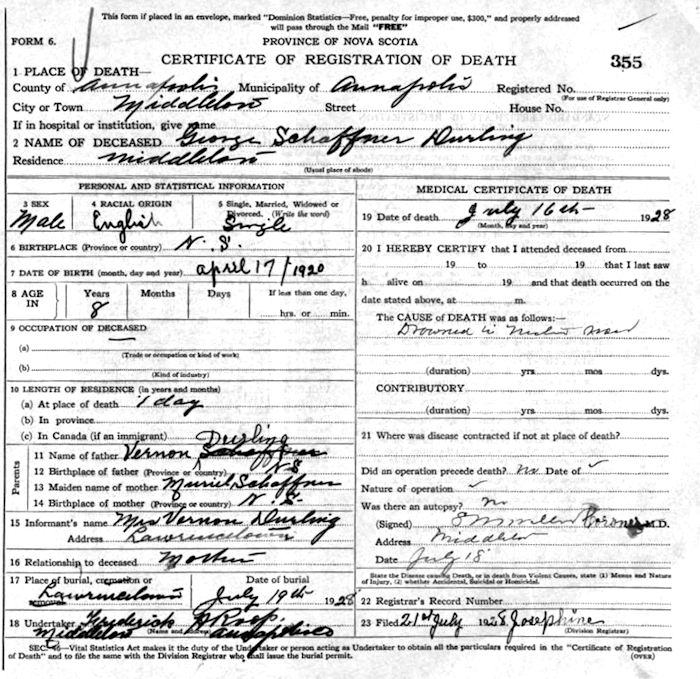 This form if placed in an envelope, marked "Dominion Statistics—Free, penalty for improper use, $300," and properly addressed
will pass through the Mail "FREE"
FORM 6.
PROVINCE OF NOVA SCOTIA
CERTIFICATE OF REGISTRATION OF DEATH
355
1 PLACE OF DEATH—
County of Annapolis Municipality of Annapolis Registered No.
(For use of Registrar General only)
City or Town Middleton Street House No.
If in hospital or institution, give name
2 NAME OF DECEASED George Schaffner Durling
Residence Middleton
(Usual place of abode)
PERSONAL AND STATISTICAL INFORMATION
3 SEX 4 RACIAL ORIGIN 5 Single, Married, Widowed or
Divorced. (Write the word)
Male English Single
6 BIRTHPLACE (Province or country) N. S.
7 DATE OF BIRTH (month, day and year) April 17/1920
8 AGE IN Years Months Days If less than one day,
8 hrs. or min.
9 OCCUPATION OF DECEASED
(a) —
(Trade or occupation or kind of work)
(b)
(Kind of industry)
10 LENGTH OF RESIDENCE (in years and months)
(a) At place of death 1 day
(b) In province
(c) In Canada (if an immigrant)
Parents
Durling
11 Name of father Vernon Schaffner
12 Birthplace of father (Province or country) N S
13 Maiden name of mother Muriel Schaffner
14 Birthplace of mother (Province or country) N. S.
15 Informant's name Mrs Vernon Durling
Address Lawrencetown
16 Relationship to deceased Mother
17 Place of burial, cremation or Date of burial
Lawrencetown July 19th 1928
18 Undertaker Frederick Roop
(Name and address)
Middleton Annapolis Co
MEDICAL CERTIFICATE OF DEATH
19 Date of death July 16th 1928
(Month, day and year)
20 I HEREBY CERTIFY that I attended deceased from
19 to 19 that I last saw
h alive on 19 and that death occurred on the
date stated above, at m.
The CAUSE of DEATH was as follows:—
Drowned in
(duration) yrs. mos. dys.
CONTRIBUTORY
(duration) yrs. mos. dys.
21 Where was disease contracted if not at place of death?
Did an operation precede death? No Date of ✓
Nature of operation ✓
Was there an autopsy? No
(Signed) Coroner M.D.
Address Middleton
Date July 18
State the Disease causing Death, or in death from Violent Causes, state (1) Means and Nature
of Injury, (2) whether Accidental, Suicidal or Homicidal.
22 Registrar's Record Number
23 Filed 21st July 1928 Josephine
(Division Registrar)
—Vital Statistics Act makes it the duty of the Undertaker or person acting as Undertaker to obtain all the particulars required in the "Certificate of Registration
of Death" and to file the same with the Division Registrar who shall issue the burial permit.
(OVER)